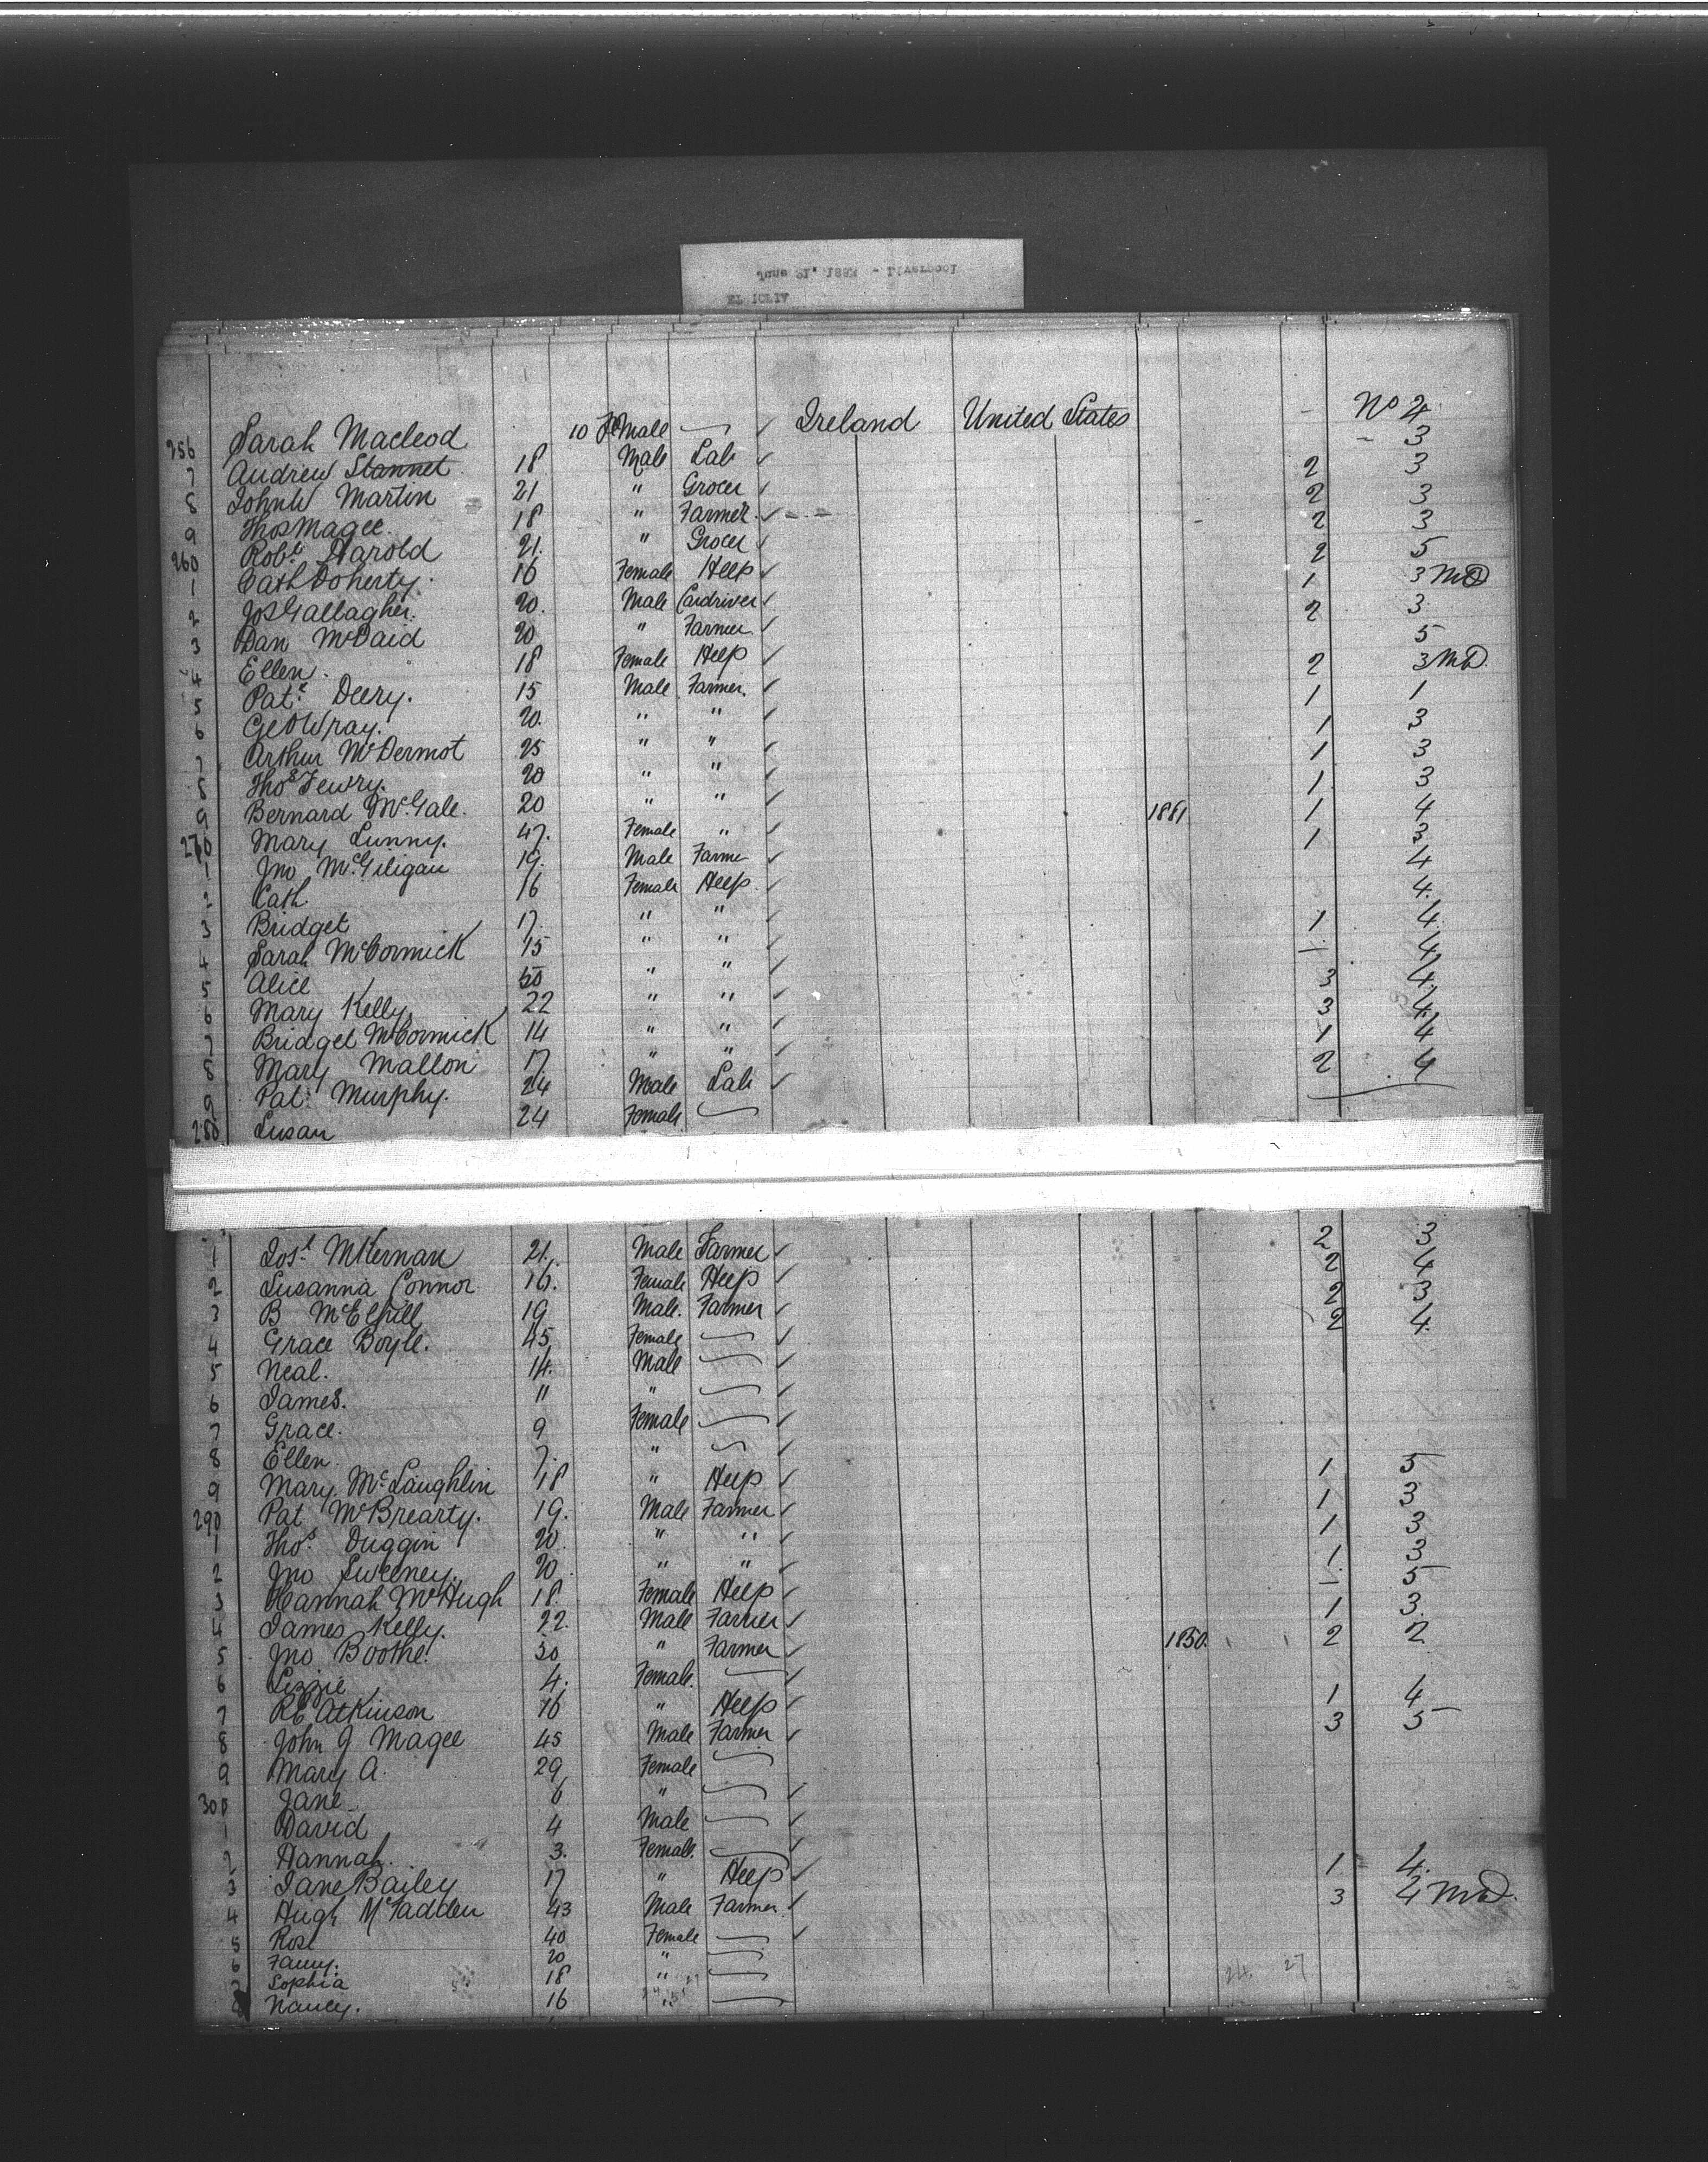 256 Sarah Macleod 10 FeMale Ireland United States - No 4
7 Andrew Stannet 18 Male Lab - 3
8 John W Martin 21 " Grocer 2 3
9 Thos Magee. 18 " Farmer 2 3
260 Robt Harold 21. " Grocer 2 3
1 Cath Doherty. 16 Female Help 2 5
2 Jos Gallagher. 20. Male Cardriver 1 3 MD
3 Dan McDaid 20 " Farmer 2 3
4 Ellen. 18 Female Help 5
5 Patk Deery. 15 Male Farmer. 2 3 MD.
6 Geo Wray. 20. " " 1 1
7 Arthur McDermot 25 " " 1 3
8 Thos 20 " " 1 3
9 Bernard McGale. 20 " " 1 3
270 Mary Lunny. 47. Female " 1881 1 4
1 Jno McGiligan 19. Male Farmer 1 3
2 Cath 16 Female Help 4
3 Bridget 17. " " 4.
4 Sarah McCormick 15 " " 1 4
5 Alice 50 " " 4
6 Mary Kelly. 22 " " 3 4
7 Bridget McCormick 14 " " 3 4
8 Mary Mallon 17. " " 1 4
9 Pat. Murphy. 24 Male Lab 2 4
280 Susan 24 Female
1 Josh McKernan 21. Male Farmer 2 3
2 Susanna Connor 16. Female Help 2 4
3 B 19 Male. Farmer 2 3
4 Grace Boyle. 45 Female 2 4.
5 Neal. 14. Male
6 James. 11 "
7 Grace. 9 Female
8 Ellen 7. "
9 Mary McLaughlin 18 " Help 1 5
290 Pat McBrearty. 19. Male Farmer 1 3
1 Thos. Duggin 20. " " 1 3
2 Jno Sweeney. 20. " " 1. 3
3 Hannah McHugh 18. Female Help 5
4 James Kelly. 22. Male Farmer 1 3.
5 Jno Boothe. 30 " Farmer 1880. 2 2.
6 Lizzie 4. Female.
7 RE Atkinson 16 " Help 1 4
8 John J Magee 45 Male Farmer 3 5
9 Mary A. 29 Female
300 Jane 6 "
1 David 4 Male
2 Hannah. 3. Female.
3 Jane Bailey 17 " Help 1 4.
4 Hugh McFadden 43 Male Farmer. 3 4 MD.
5 Rose 40 Female
6 Fanny. 20 "
7 Sophia 18 "
8 Nancy. 16 "
24. 27